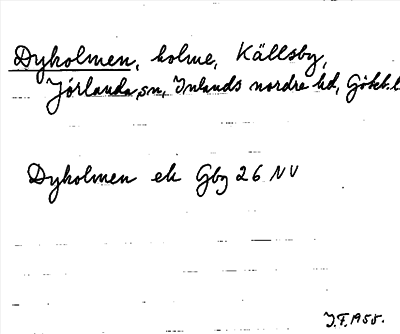 Dyholmen, holme, Källsby,
Jörlanda sn, Inlands nordre hd, Göteb. l
Dyholmen ek Gbg 26 NV
J.F. 1955.